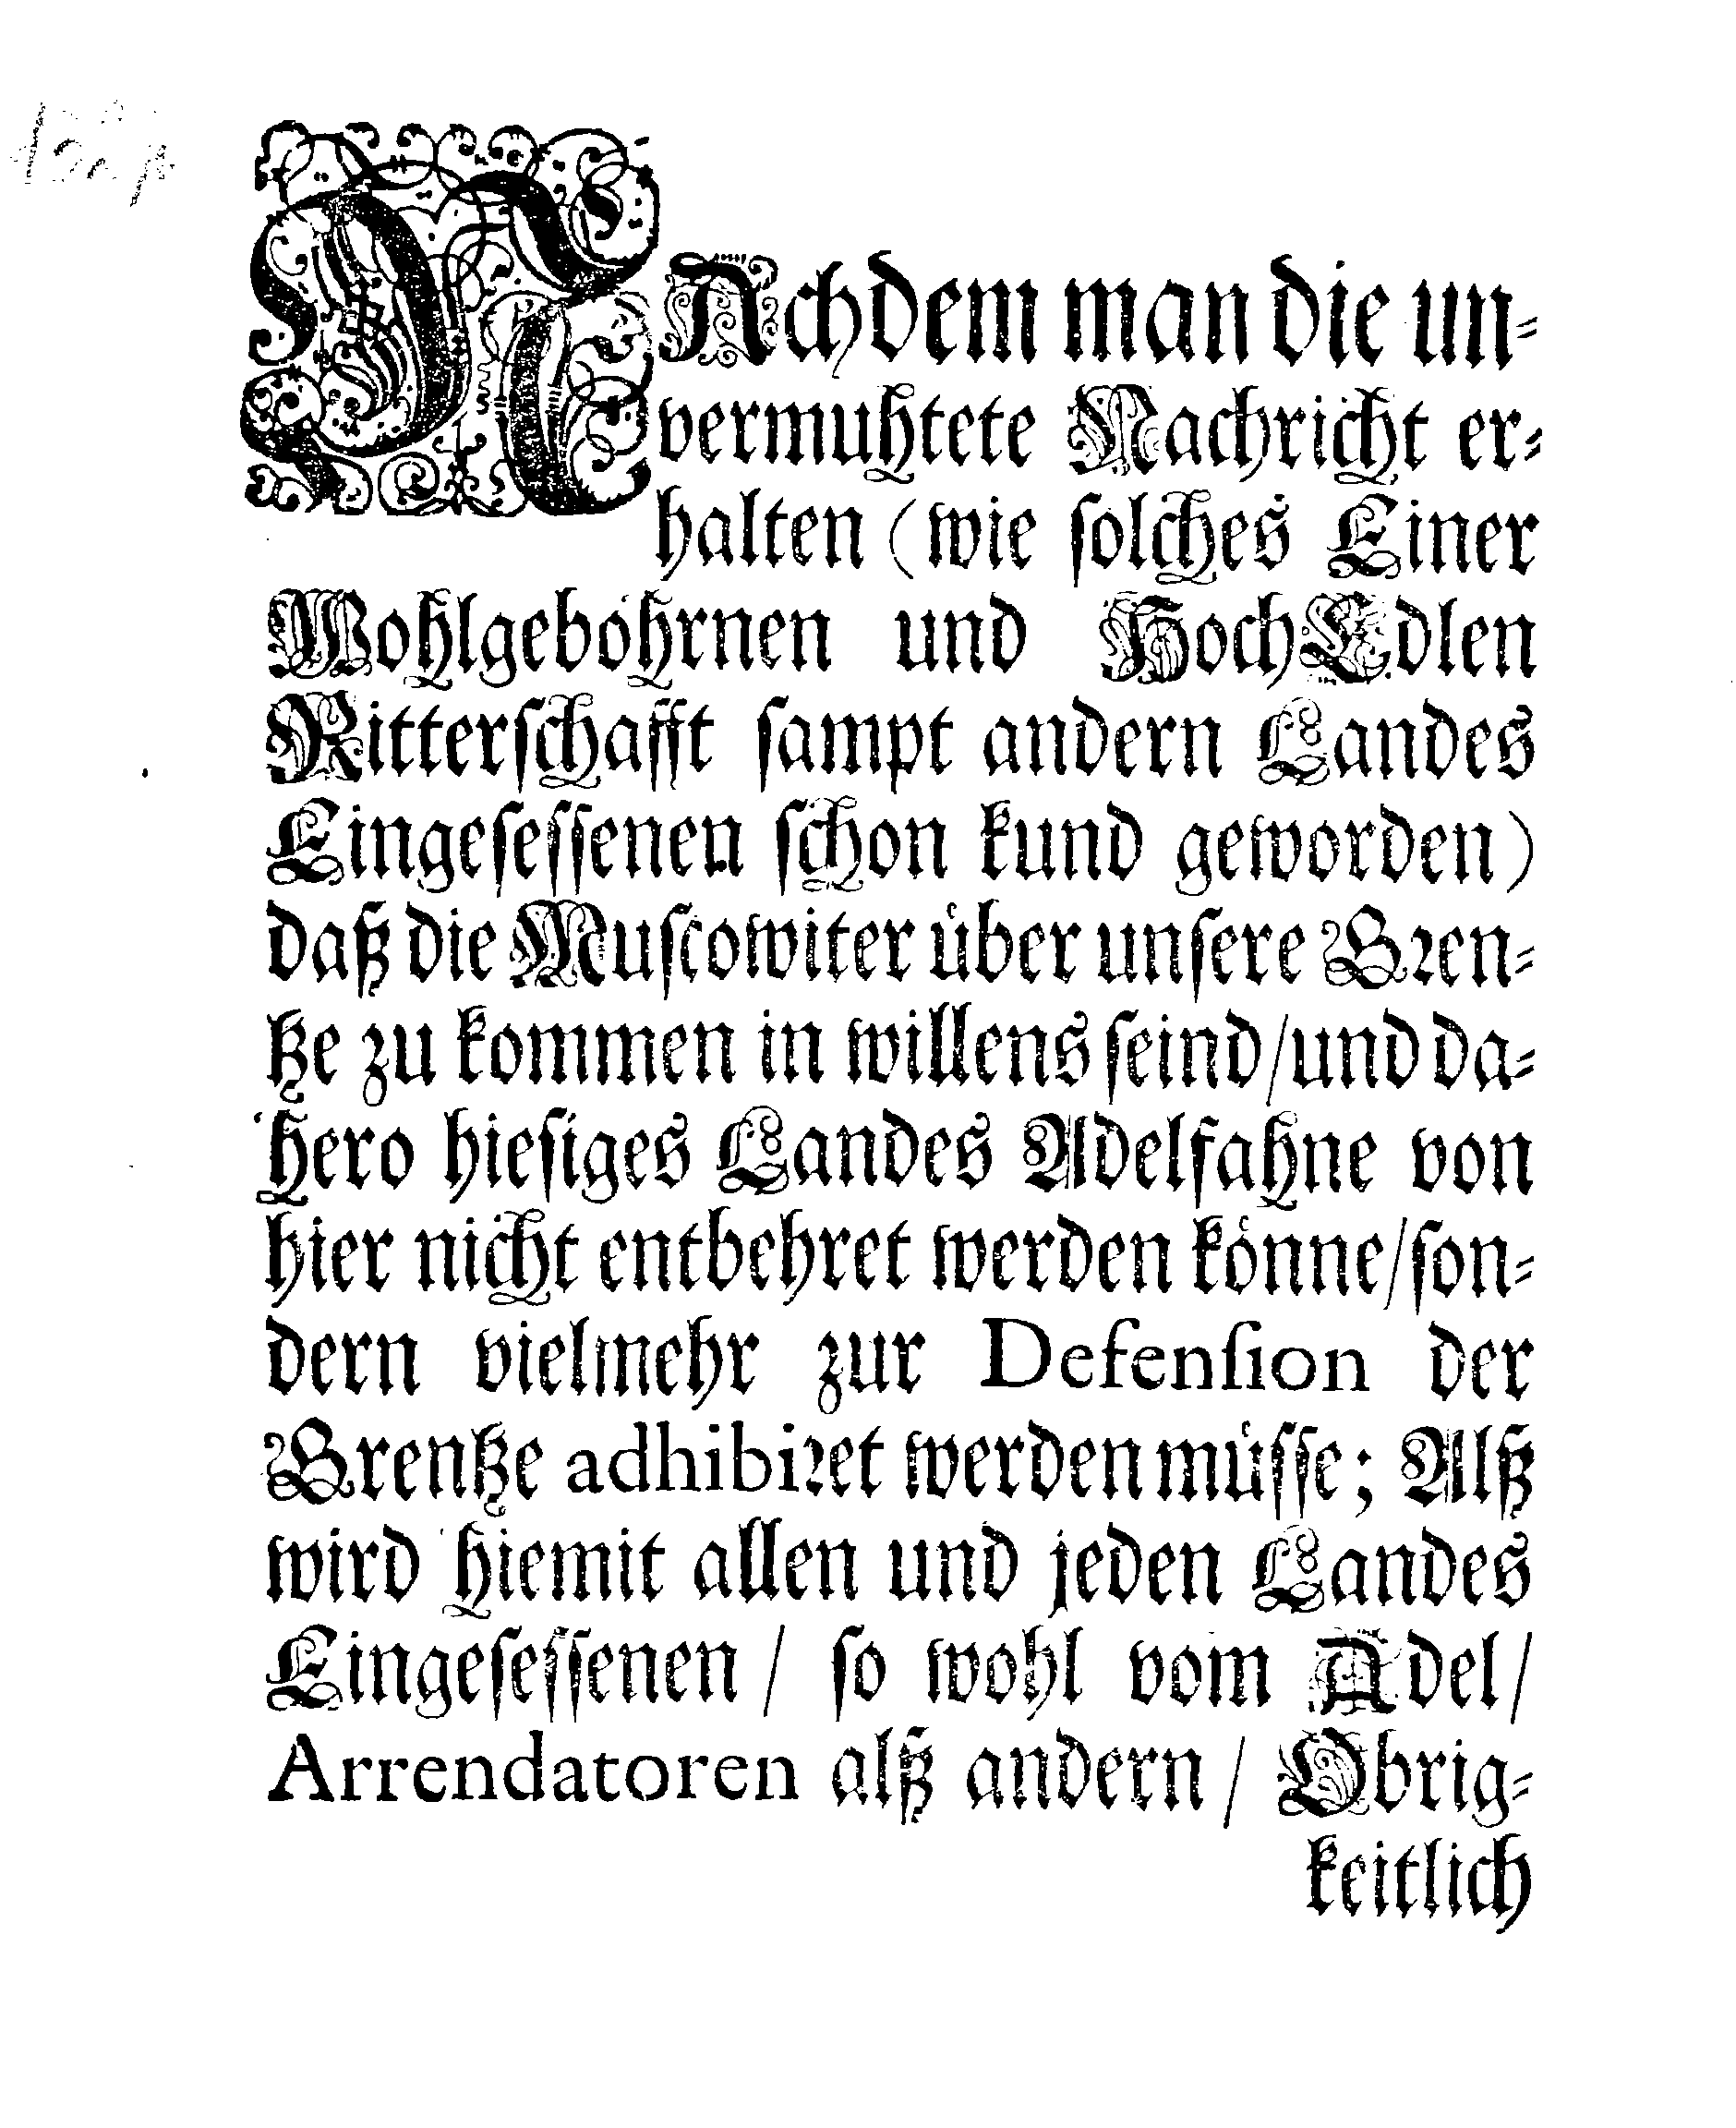 NAchdem man die un-
vermuhtete Nachricht er-
halten (wie solches Einer
Wohlgebohrnen und HochEdlen
Ritterschafft sampt andern Landes
Eingesessenen schon kund geworden)
daß die Muscowiter über unsere Gren-
tze zu kommen in willens seind/und da-
hero hiesiges Landes Adelfahne von
hier nicht entbehret werden könne/son-
dern vielmehr zur Defension der
Grentze adhibiret werden müsse; Alß
wird hiemit allen und jeden Landes
Eingesessenen/ so wohl vom Adel/
Arrendatoren alß andern/ Obrig-
keitlich